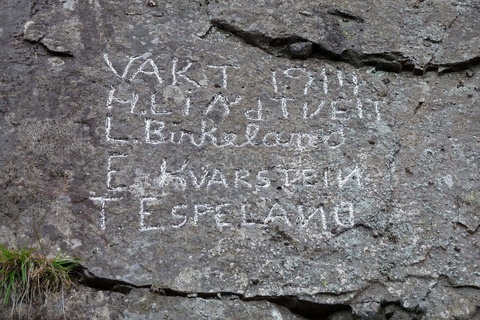 VAKT 1914
M LINDTVEIT
L. Birkeland
E KVARSTEIN
T ESPELAND